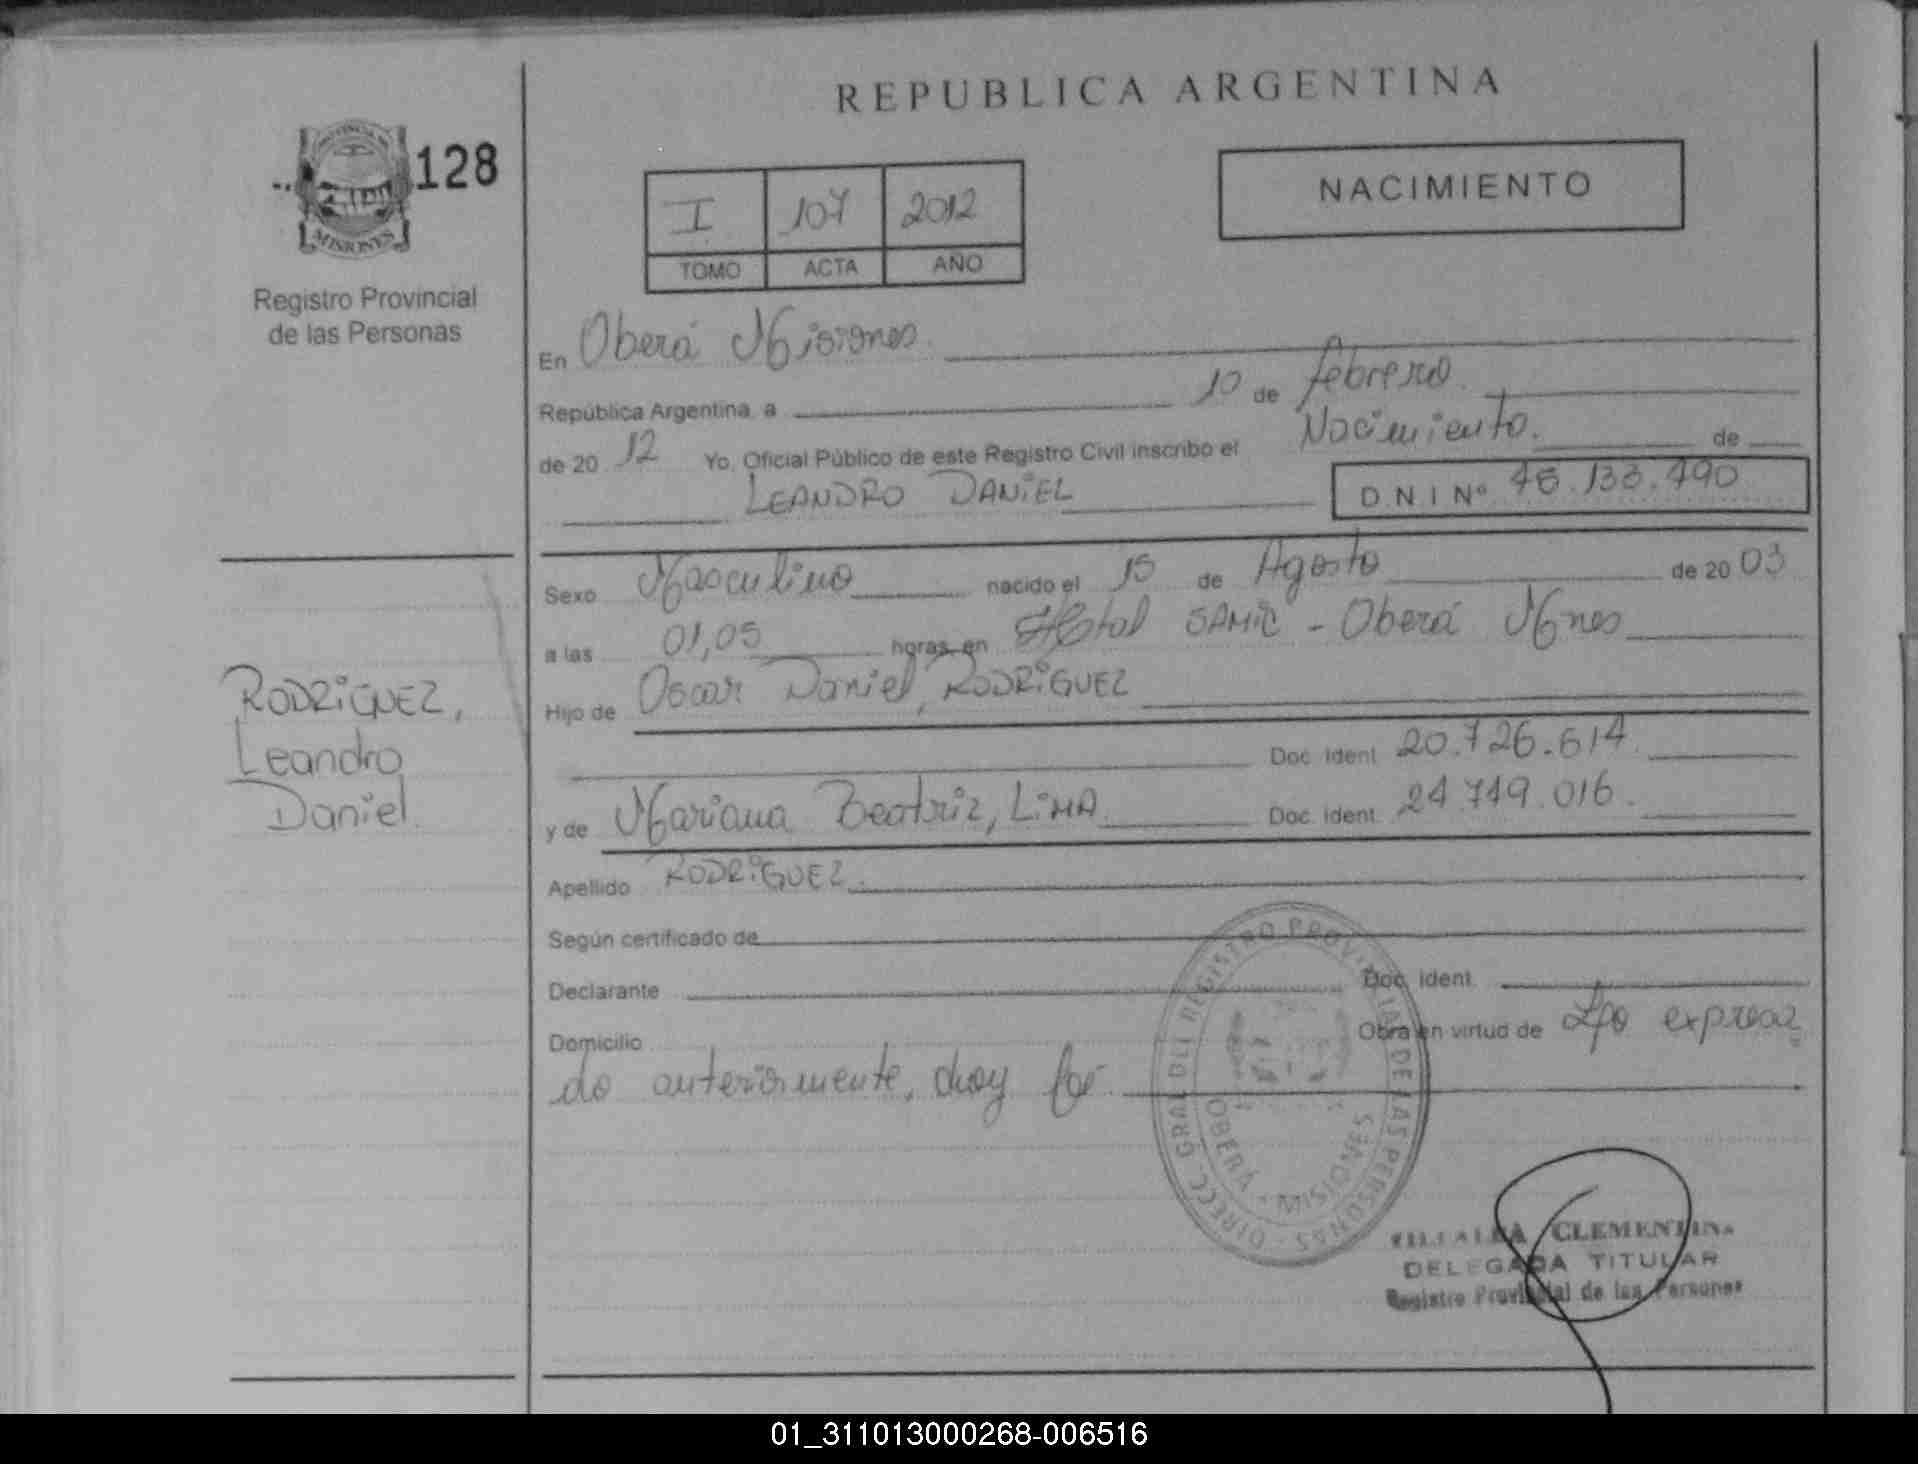 REPUBLICA ARGENTINA
PROVINCIA DE
MISIONES
128
Registro Provincial
de las Personas
I 107 2012
TOMO ACTA AÑO
NACIMIENTO
En Oberá Misiones
República Argentina, a 10 de febrero
de 20 12 Yo, Oficial Público de este Registro Civil inscribo el Nacimiento. de
LEANDRO DANIEL D.N.I Nº 45.133.490
Sexo Masculino nacido el 15 de Agosto de 20 03
a las 01,05 horas, en Hptal SAMIC - Oberá Mnes
Hijo de Oscar Daniel, RODRIGUEZ
Doc. Ident. 20.726.614
y de Mariana Beatriz, LIMA Doc. Ident. 24.719.016.
Apellido RODRIGUEZ.
Según certificado de
Declarante Doc. Ident.
Domicilio Obra en virtud de Lpo expresa
do anteriormente, doy fé.
RODRIGUEZ,
Leandro
Daniel.
DIRECC. GRAL DEL REGISTRO PROVINCIAL DE LAS PERSONAS
OBERÁ - MISIONES
VILLALBA CLEMENTINA
DELEGADA TITULAR
Registro Provincial de las Personas
01_311013000268-006516